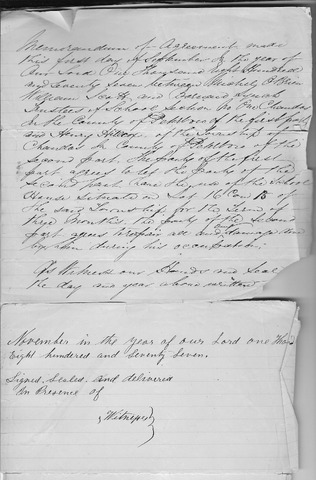 Memorandum of Agreement made
this first day of September in the year of
Our Lord One Thousand eight Hundred
and Seventy Seven between Michael O'Brien
William Scott and Edward
Trustees of School Section No One Chandos
in the County of Peterboro of the first part
and Henry of the Township of
Chandos in County of Peterboro of the
Second part. The party of the first
part agrees to let the party of the
Second part have the use of the School
House Situated on Lot 16 Con 13 of
the said Township for the term of
three months the party of the Second
part agrees to repair all and damage
by him during his occupation
As Witness our Hands and Seal
the day and year above written
November in the year of our Lord one Thous
Eight hundred and seventy Seven.
Signed, Sealed, and delivered
In Presence of
Witness